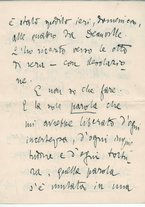 È stato spedito ieri, domenica,
alle quattro da Deauville
L'ho ricevuto verso le otto
di sera — con desolazio
ne.
E non so che fare.
E la sola parola che
mi avrebbe liberato d'ogni
incertezza, d'ogni inqui
tudine e d'ogni tortu
ra, quella parola
s'è mutata in una